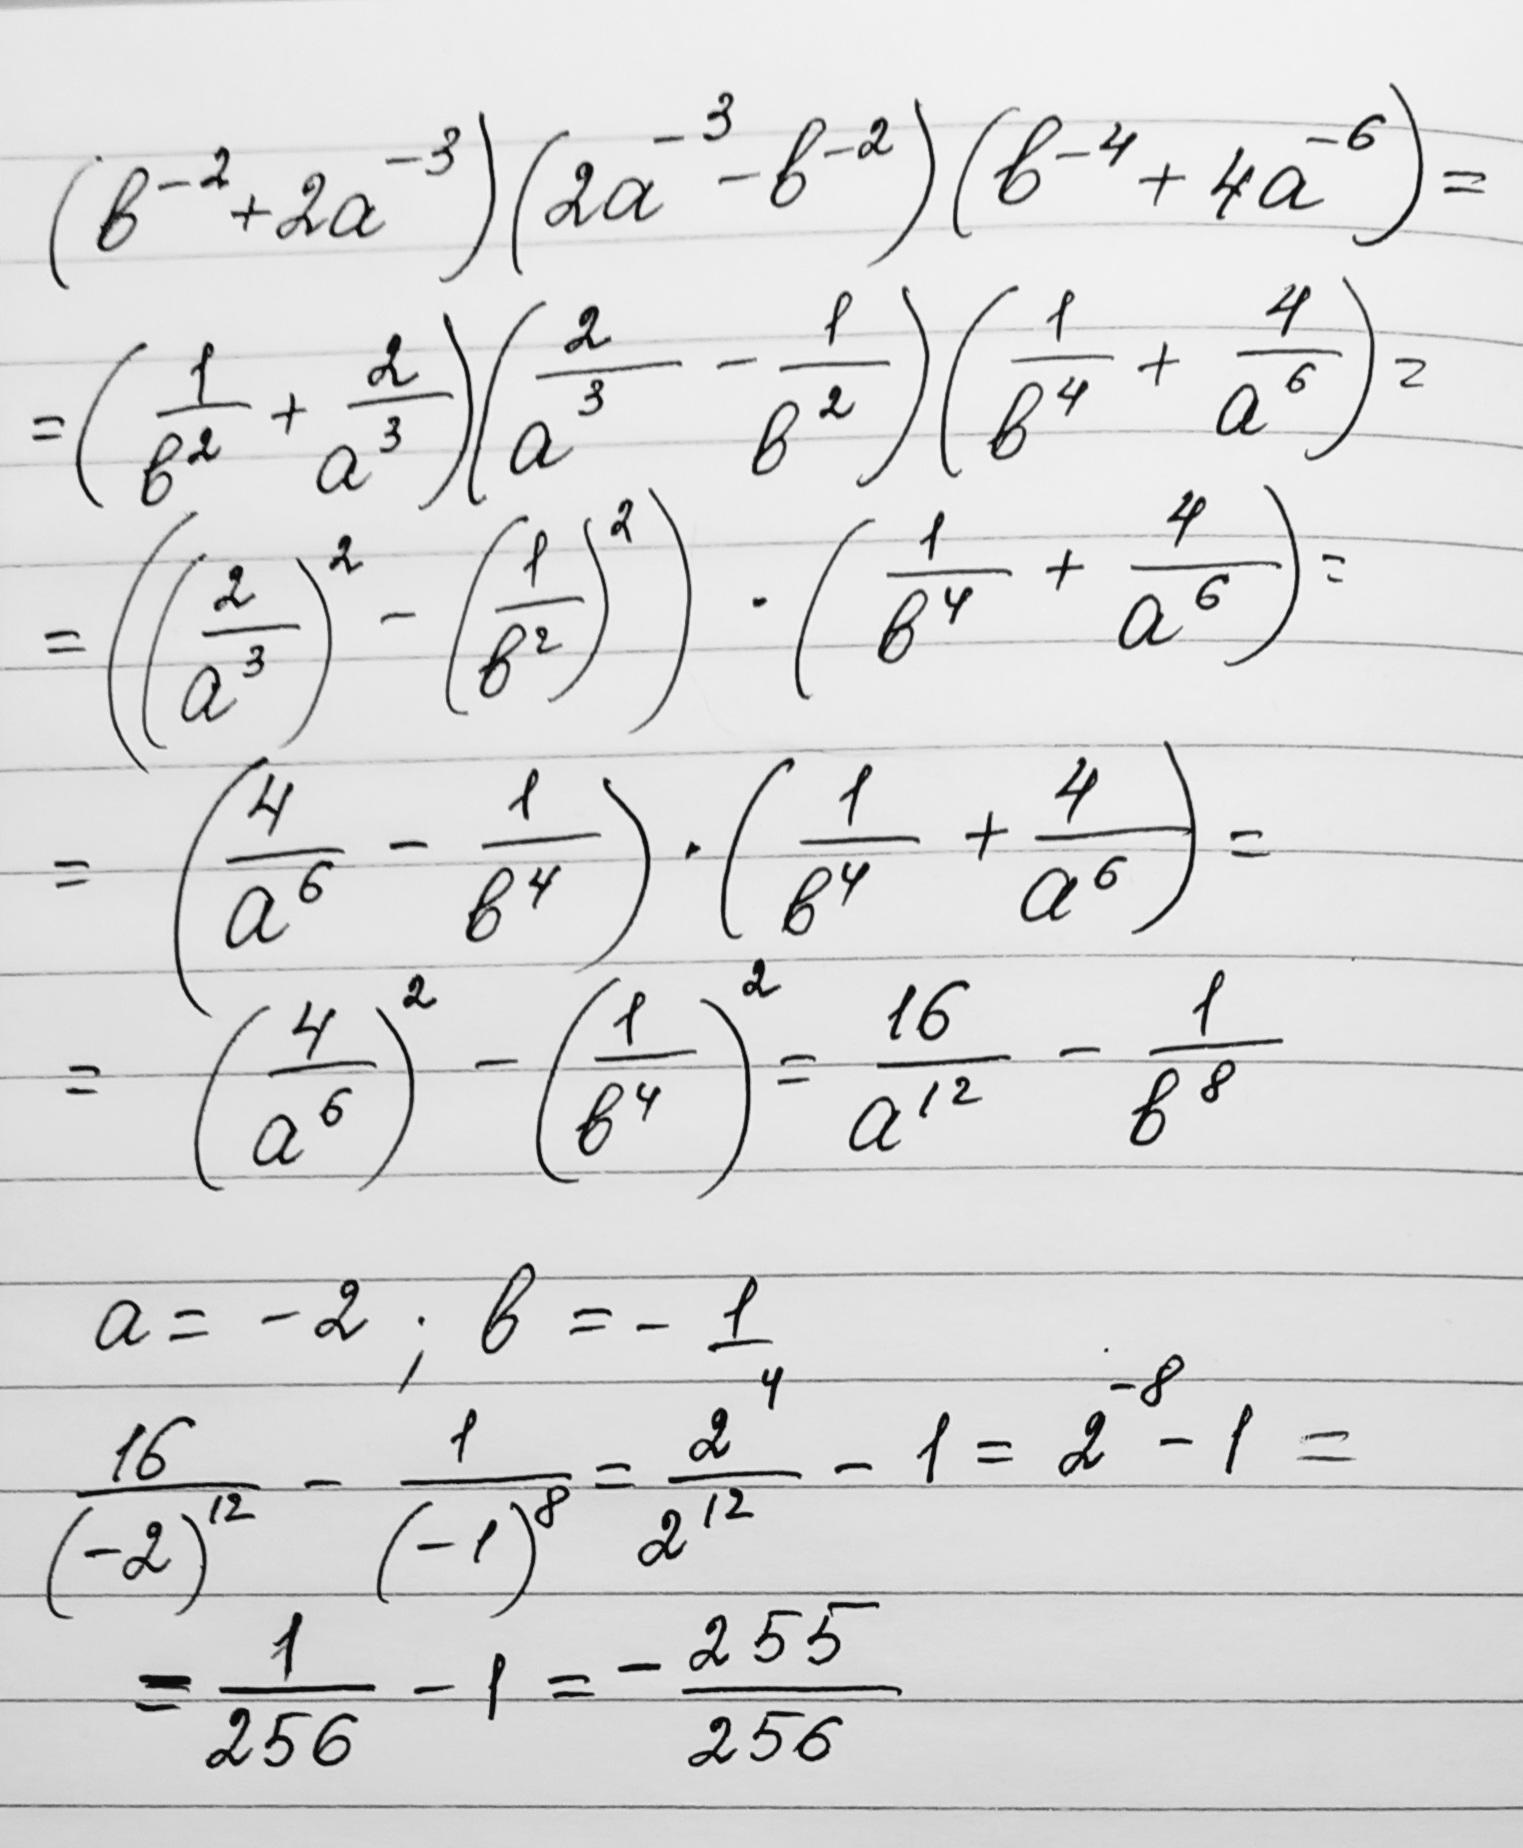 (b⁻² + 2a⁻³)(2a⁻³ - b⁻²)(b⁻⁴ + 4a⁻⁶) =
= (1/b² + 2/a³)(2/a³ - 1/b²)(1/b⁴ + 4/a⁶) =
= ((2/a³)² - (1/b²)²) · (1/b⁴ + 4/a⁶) =
= (4/a⁶ - 1/b⁴) · (1/b⁴ + 4/a⁶) =
= (4/a⁶)² - (1/b⁴)² = 16/a¹² - 1/b⁸
a = -2 ; b = -1
16/(-2)¹² - 1/(-1)⁸ = 2⁴/2¹² - 1 = 2⁻⁸ - 1 =
= 1/256 - 1 = - 255/256